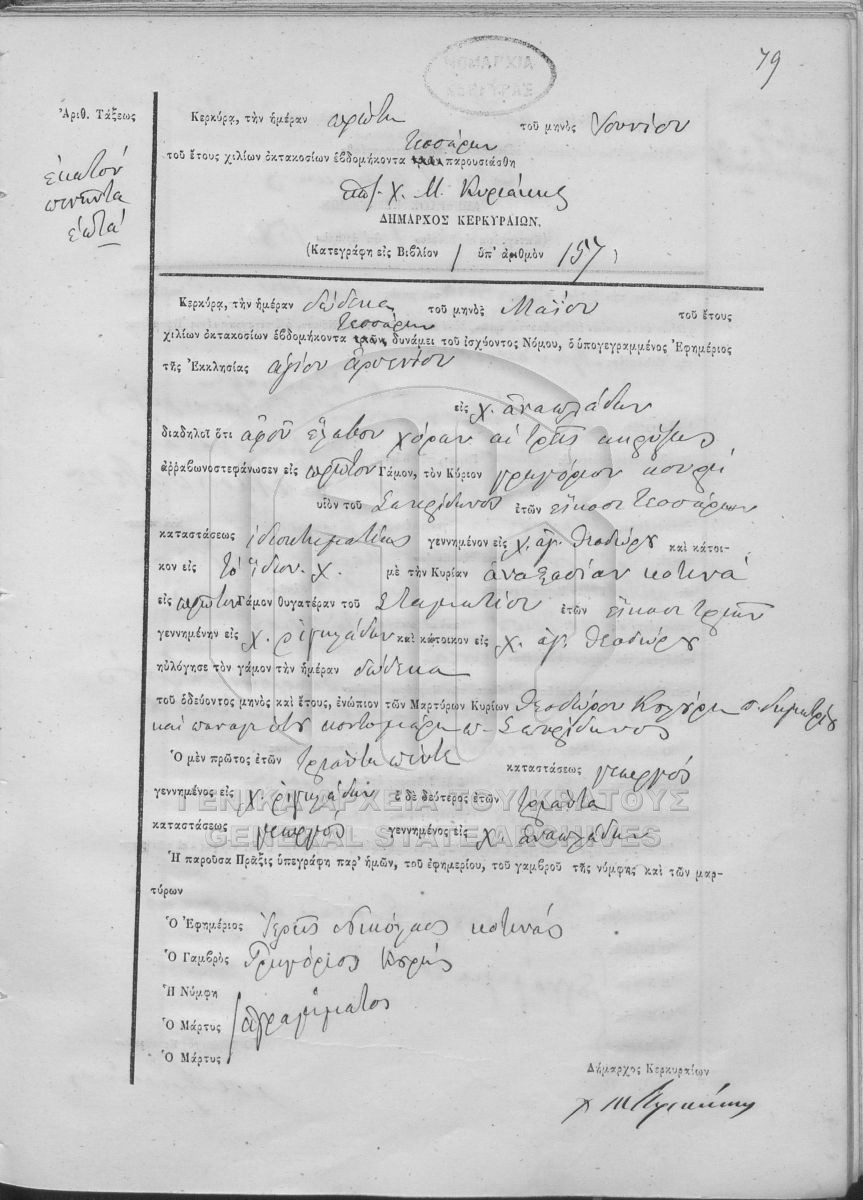 79
ΝΟΜΑΡΧΙΑ
ΚΕΡΚΥΡΑΣ
Ἀριθ. Τάξεως
ἑκατόν
πενῆντα
ἑπτά
Κερκύρα, τὴν ἡμέραν πρώτη τοῦ μηνὸς Ἰουνίου
τεσσάρων
τοῦ ἔτους χιλίων ὀκτακοσίων ἑβδομήκοντα τριῶν παρουσιάσθη
Χ. Μ. Κυριάκης
ΔΗΜΑΡΧΟΣ ΚΕΡΚΥΡΑΙΩΝ.
(Κατεγράφη εἰς Βιβλίον 1 ὑπ' ἀριθμὸν 157)
Κερκύρα, τὴν ἡμέραν δώδεκα τοῦ μηνὸς Μαΐου τοῦ ἔτους
τεσσάρων
χιλίων ὀκτακοσίων ἑβδομήκοντα τριῶν, δυνάμει τοῦ ἰσχύοντος Νόμου, ὁ ὑπογεγραμμένος Ἐφημέριος
τῆς Ἐκκλησίας ἁγίου ἀρσενίου
εἰς χ. ἀναπλάδων
διαδηλοῖ ὅτι ἀφοῦ ἔλαβον χόραν αἱ τρεῖς κηρύξεις
ἀῤῥαβωνοστεφάνωσεν εἰς πρῶτον Γάμον, τὸν Κύριον γρηγόριον
υἱὸν τοῦ Σπυρίδωνος ἐτῶν εἴκοσι τεσσάρων
καταστάσεως ἰδιοκτηματίας γεννημένον εἰς χ. ἁγ. θεοδώρου καὶ κάτοι-
κον εἰς τὸ ἴδιον χ. μὲ τὴν Κυρίαν ἀναστασίαν κοτινά
εἰς πρῶτον Γάμον θυγατέραν τοῦ Σταματίου ἐτῶν εἴκοσι τριῶν
γεννημένην εἰς χ. ῥιγγλάδων καὶ κάτοικον εἰς χ. ἁγ. θεοδώρου
ηὐλόγησε τὸν γάμον τὴν ἡμέραν δώδεκα
τοῦ ὁδεύοντος μηνὸς καὶ ἔτους, ἐνώπιον τῶν Μαρτύρων Κυρίων θεοδώρου π. δημητρίου
καὶ παναγιώτου κοντομάρη π. Σπυρίδωνος
Ὁ μὲν πρῶτος ἐτῶν τριάντα πέντε καταστάσεως γεωργός
γεννημένος εἰς χ. ῥιγγλάδων ὁ δὲ δεύτερος ἐτῶν τριάντα
καταστάσεως γεωργός γεννημένος εἰς χ. ἀναπλάδων
ΓΕΝΙΚΑ ΑΡΧΕΙΑ ΤΟΥ ΚΡΑΤΟΥΣ
GENERAL STATE ARCHIVES
Ἡ παροῦσα Πρᾶξις ὑπεγράφη παρ' ἡμῶν, τοῦ ἐφημερίου, τοῦ γαμβροῦ τῆς νύμφης καὶ τῶν μαρ-
τύρων
Ὁ Ἐφημέριος Ἱερεὺς Νικόλαος κοτινάς
Ὁ Γαμβρὸς Γρηγόριος
Ἡ Νύμφη
Ὁ Μάρτυς ἀγράμματος
Ὁ Μάρτυς
Δήμαρχος Κερκυραίων
Χ Μ Κυριάκης